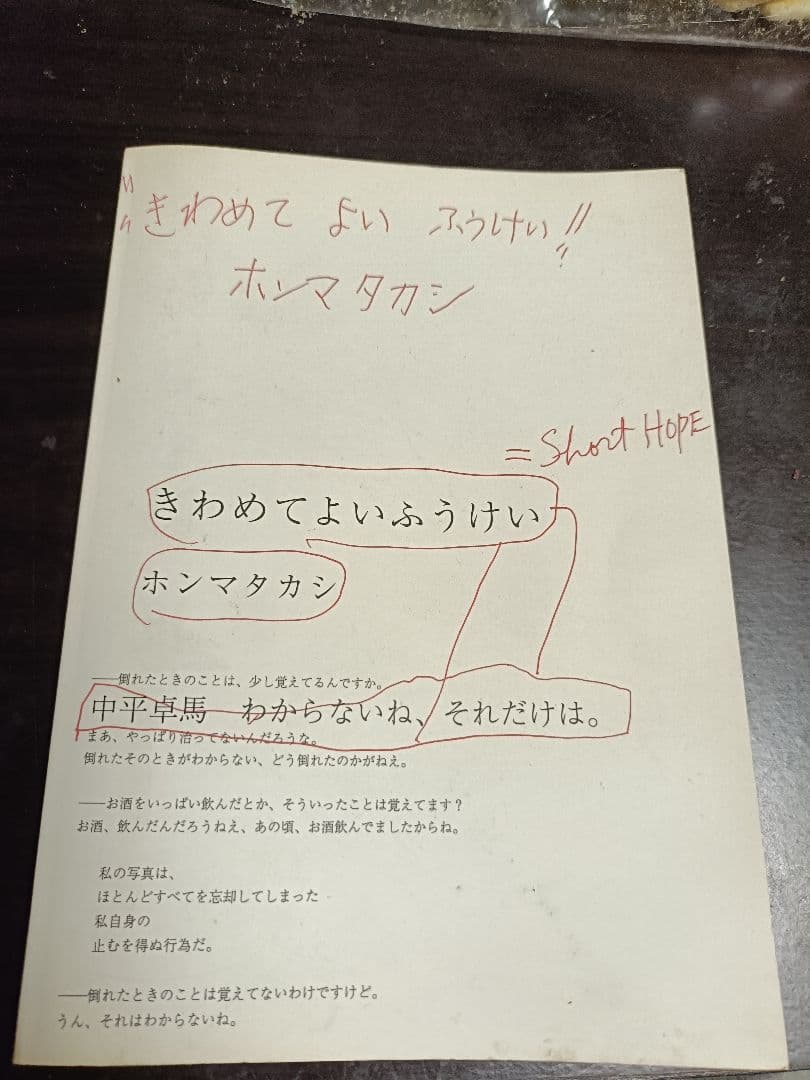 きわめて よい ふうけい!!
ホンマタカシ
= Short HOPE
きわめてよいふうけい
ホンマタカシ
——倒れたときのことは、少し覚えてるんですか。
中平卓馬　わからないね、それだけは。
まあ、やっぱり治ってないんだろうな。
倒れたそのときがわからない、どう倒れたのかがねえ。
——お酒をいっぱい飲んだとか、そういったことは覚えてます？
お酒、飲んだんだろうねえ、あの頃、お酒飲んでましたからね。
私の写真は、
ほとんどすべてを忘却してしまった
私自身の
止むを得ぬ行為だ。
——倒れたときのことは覚えてないわけですけど。
うん、それはわからないね。